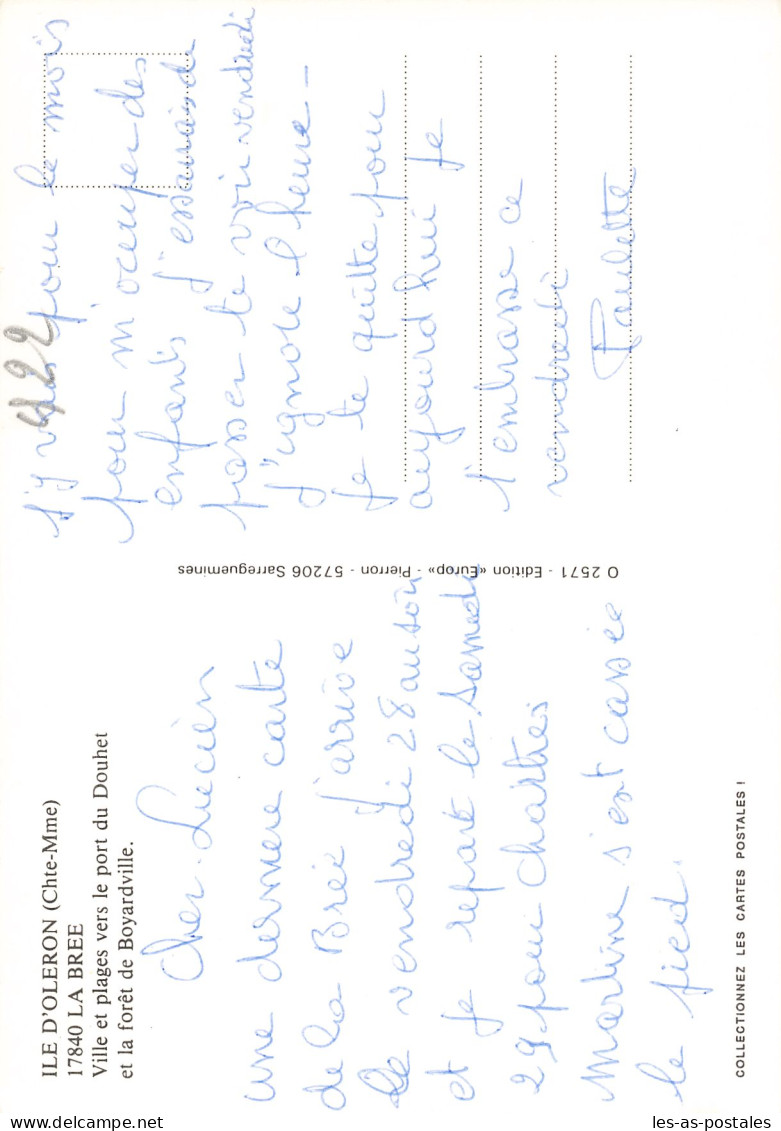 ILE D'OLERON (Chte-Mme)
17840 LA BREE
Ville et plages vers le port du Douhet
et la forêt de Boyardville.
Cher Lucien
une derniere carte
de la Brée j'arrive
le vendredi 28 au soir
et je repart le samedi
29 pour Chartres
Martine s'est cassée
le pied.
COLLECTIONNEZ LES CARTES POSTALES !
O 2571 - Edition «Europ» - Pierron - 57206 Sarreguemines
422
j'y vais pour le mois
pour m'occuper des
enfants j'essairais de
passer te voir vendredi
j'ignore l'heure -
je te quitte pour
aujourd'hui je
t'embrasse ce
vendredi
Paulette
les-as-postales.com